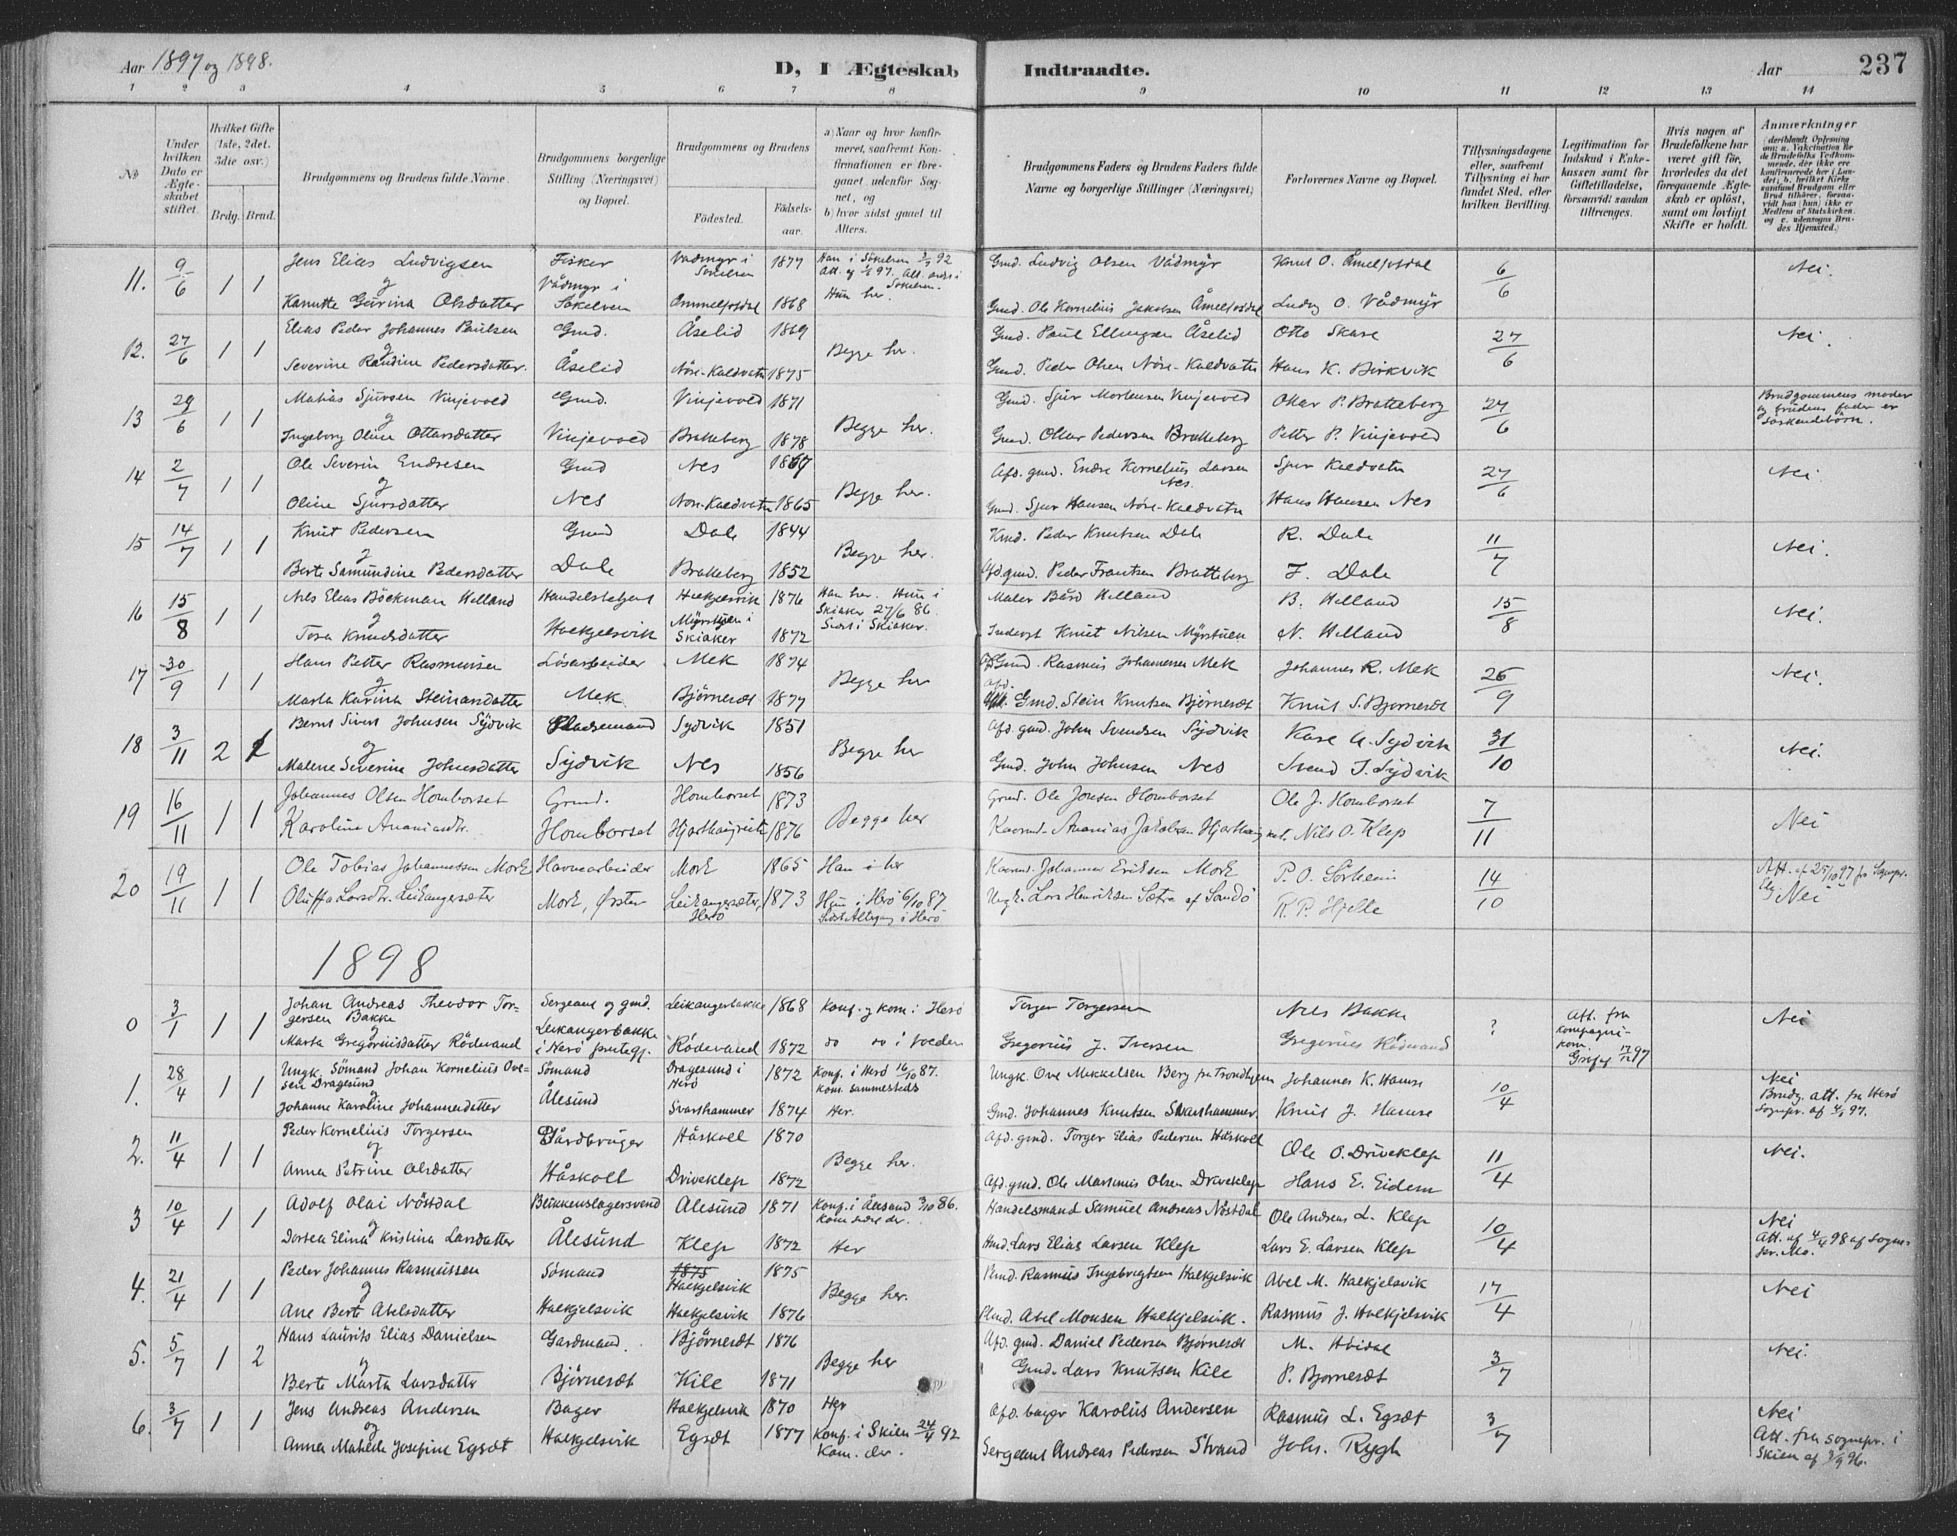 Aar 1897 og 1898.
D, I Ægteskab Indtraadte.
Aar 237
1 2 3 4 5 6 7 8 9 10 11 12 13 14
No
Under hvilken Dato er Ægteskabet stiftet.
Hvilket Gifte (1ste, 2det. 3die osv.)
Brdg. Brud.
Brudgommens og Brudens fulde Navne
Brudgommens borgerlige Stilling (Næringsvei) og Bopæl.
Brudgommens og Brudens
Födested.
Födsels-aar.
a) Naar og hvor konfirmeret, saafremt Konfirmationen er foregaaet udenfor Sognet, og
b) hvor sidst gaaet til Alters.
Brudgommens Faders og Brudens Faders fulde Navne og borgerlige Stillinger (Næringsvei)
Forlovernes Navne og Bopæl.
Tillysningsdagene eller, saafremt Tillysning ei har fundet Sted, efter hvilken Bevilling.
Legitimation for Indskud i Enkekassen samt for Giftetilladelse, forsaavidt saadan tiltrænges.
Hvis nogen af Brudefolkene har været gift för, hvorledes da det foregaaende Ægteskab er oplöst, samt om lovligt Skifte er holdt.
Anmærkninger
11. 9/6 1 1 Jens Elias Ludvigsen Fisker Vådmyr i Søkelven 1877 Gmd. Ludvig Olsen Vådmyr Knut O. Åmelfosdal 6/6 Nei.
og Vådmyr i
Kanutte Gurina Olsdatter Søkelven Ommelfosdal 1868 Hun her. Gmd. Ole Kornelius Jakobsen Åmelfosdal Ludv. O. Vådmyr
12. 27/6 1 1 Elias Peder Johannes Paulsen Gmd. Åselid 1869 Begge her. Gmd. Paul Ellingsen Åselid Otto Skare 27/6 Nei.
og
Severine Randine Pedersdatter. Åselid Nöre-Kaldvatn 1875 Gmd. Peder Olsen Nöre-Kaldvatn Hans K. Birkvik
13 29/6 1 1 Matias Sjursen Vinjevold Gmd. Vinjevold 1871 Begge her. Gmd. Sjur Mortensen Vinjevold Oltar P. Bratteberg 27/6 Brudgommens moder og brudens fader er söskendebörn.
og
Ingeborg Oline Ottarsdatter Vinjevold Bratteberg 1878 Gmd. Ottar Pedersen Bratteberg Petter P. Vinjevold
14 2/7 1 1 Ole Severin Endresen Gmd Nes 1867 Begge her. Afd. gmd. Endre Kornelius Larsen Nes. Sjur Kaldvatn 27/6 Nei
og
Oline Sjursdatter Nes Nöre-Kaldvatn 1865 Gmd. Sjur Hansen Nöre-Kaldvatn Hans Hansen Nes
15 14/7 1 1 Knut Pedersen Gmd Dale 1844 Begge her. Kmd. Peder Knutsen Dale R. Dale 11/7 Nei.
og
Berte Samundine Pedersdatter Dale Bratteberg 1852 Afd. gmd. Peder Frantsen Bratteberg J. Dale
16 15/8 1 1 Nils Elias Böckman Helland Handelsbetjent Halkjelsvik 1876 Han her. Hun i Skiaker 27/6 86. Sidst i Skiaker. Maler Bård Helland B. Helland 15/8 Nei.
og
Tora Knudsdatter Halkjelsvik Myrstuen i Skiaker 1872 Inderst Knut Nilsen Myrstuen N. Helland
17 30/9 1 1 Hans Petter Rasmussen Lösarbeider Mek 1874 Begge her Afd. Gmd. Rasmus Johannessen Mek Johannes R. Mek 26/9 Nei.
og
Marta Karina Steinarsdatter Mek. Björnerdt 1877 Gmd. Stein Knutsen Björnerdt Knut S. Bjornerdt
18 3/11 2 1 Bernt Sivert Johnsen Sydvik Pladsemand Sydvik 1851 Begge her Afd. gmd. John Svendsen Sydvik Kare A. Sydvik 31/10 Nei.
og
Malene Severine Johnsdatter Sydvik Nes 1856 Gmd. John Johnsen Nes Svend J. Sydvik
19 16/11 1 1 Johannes Olsen Homborset Grmd. Homborset 1873 Begge her Grmd. Ole Jonsen Homborset Ole J. Homborset 7/11 Nei
Karoline Ananiasdtr. Homborset 1876 Kaarmd. Ananias Jakobsen Nils O. Klep
20 19/11 1 1 Ole Tobias Johannessen Mork Havnearbeider Mork 1865 Han i her Kaarmd. Johannes Eriksen Mork P. O. Sörheim 14/10 Att. af 25/10 97 fr. Sognepr.
Oluffa Larsdtr. Leikangersæter Mork, Örsten Leikangersæter, Herö 1873 Hun i Herö 6/10 87 Sidst Altergang i Herö Ungk. Lars Henriksen Sætra af Sandö K. P. Hjelle Nei
1898
0 3/1 1 1 Johan Andreas Theodor Torgersen Bakke Sergeant og gmd. Leikangerbakke 1868 Konf. og kom. i Herö Torger Torgersen Nils Bakke ? Att. fra kompagni-kom. Nei
og Leikangerbakke
Marta Gregoriusdatter Rödevand i Herö prestegj. Rödevand 1872 do do i Volden Gregorius J. Iversen Gregorius Rödevand
1. 28/4 1 1 Ungk. Sömand Johan Kornelius Ovesen Dragesund Sömand Dragesund i Herö 1872 Konf. i Herö 16/10 87. Kom. sammesteds Ungk. Ove Mikkelsen Berg fra Trondhjem Johannes K. Hamre 10/4 Nei
og Brudg. att. fra Herö sognepr. af 4/1 97.
Johanne Karoline Johannesdatter Ålesund Svarthammer 1874 Her. Gmd. Johannes Knutsen Svarthammer Knut J. Hamre
2. 11/4 1 1 Peder Kornelius Torgersen Gårdbruger Håskoll 1870 Begge her. Afd. gmd. Torger Elias Pedersen Håskoll Ole O. Driveklep 11/4 Nei.
og
Anna Petrine Olsdatter Håskoll Driveklep 1872 Afd. gmd. Ole Martinus Olsen Driveklep Hans E. Eidem
3 10/4 1 1 Adolf Olai Nöstdal Blikkenslagersvend Ålesund 1871 Konf. i Ålesund 3/10 86. Kom. sidst der. Handelsmand Samuel Andreas Nöstdal Ole Andreas L. Klep 10/4 Nei
og
Dortea Elina Kristina Larsdatter Ålesund Klep 1872 Her Gmd. Lars Elias Larsen Klep Lars E. Larsen Klep Att. af 4/4 98 af sognepr.
4. 21/4 1 1 Peder Johannes Rasmussen Sömand 1875 Halkjelsvik 1875 Begge her. Pmd. Rasmus Ingebrigtsen Halkjelsvik Abel M. Halkjelsvik 17/4 Nei
og
Ane Berte Abelsdatter Halkjelsvik Halkjelsvik 1876 Pmd. Abel Monsen Halkjelsvik. Rasmus J. Halkjelsvik
5. 5/7 1 2 Hans Laurits Elias Danielsen Gardmand. Björnerdt 1876 Begge her Afd. gmd. Daniel Pedersen Björnerdt M. Hovdal 3/7 Nei.
og
Berte Marta Larsdatter Björnerdt Kile 1871 Gmd. Lars Knutsen Kile P. Bjornerdt
6. 3/7 1 1 Jens Andreas Andersen Bager Halkjelsvik 1870 Her Afd. bager Karolus Andersen Rasmus L. Egsdt 3/7 Nei
og
Anna Matilde Josefine Egsdt Halkjelsvik Egsdt 1877 Konf. i Skien 24/4 92 Kom. der. Sergeant Andreas Pedersen Strand Johs. Rygh Att. fra sognepr. i Skien af 3/9 96.